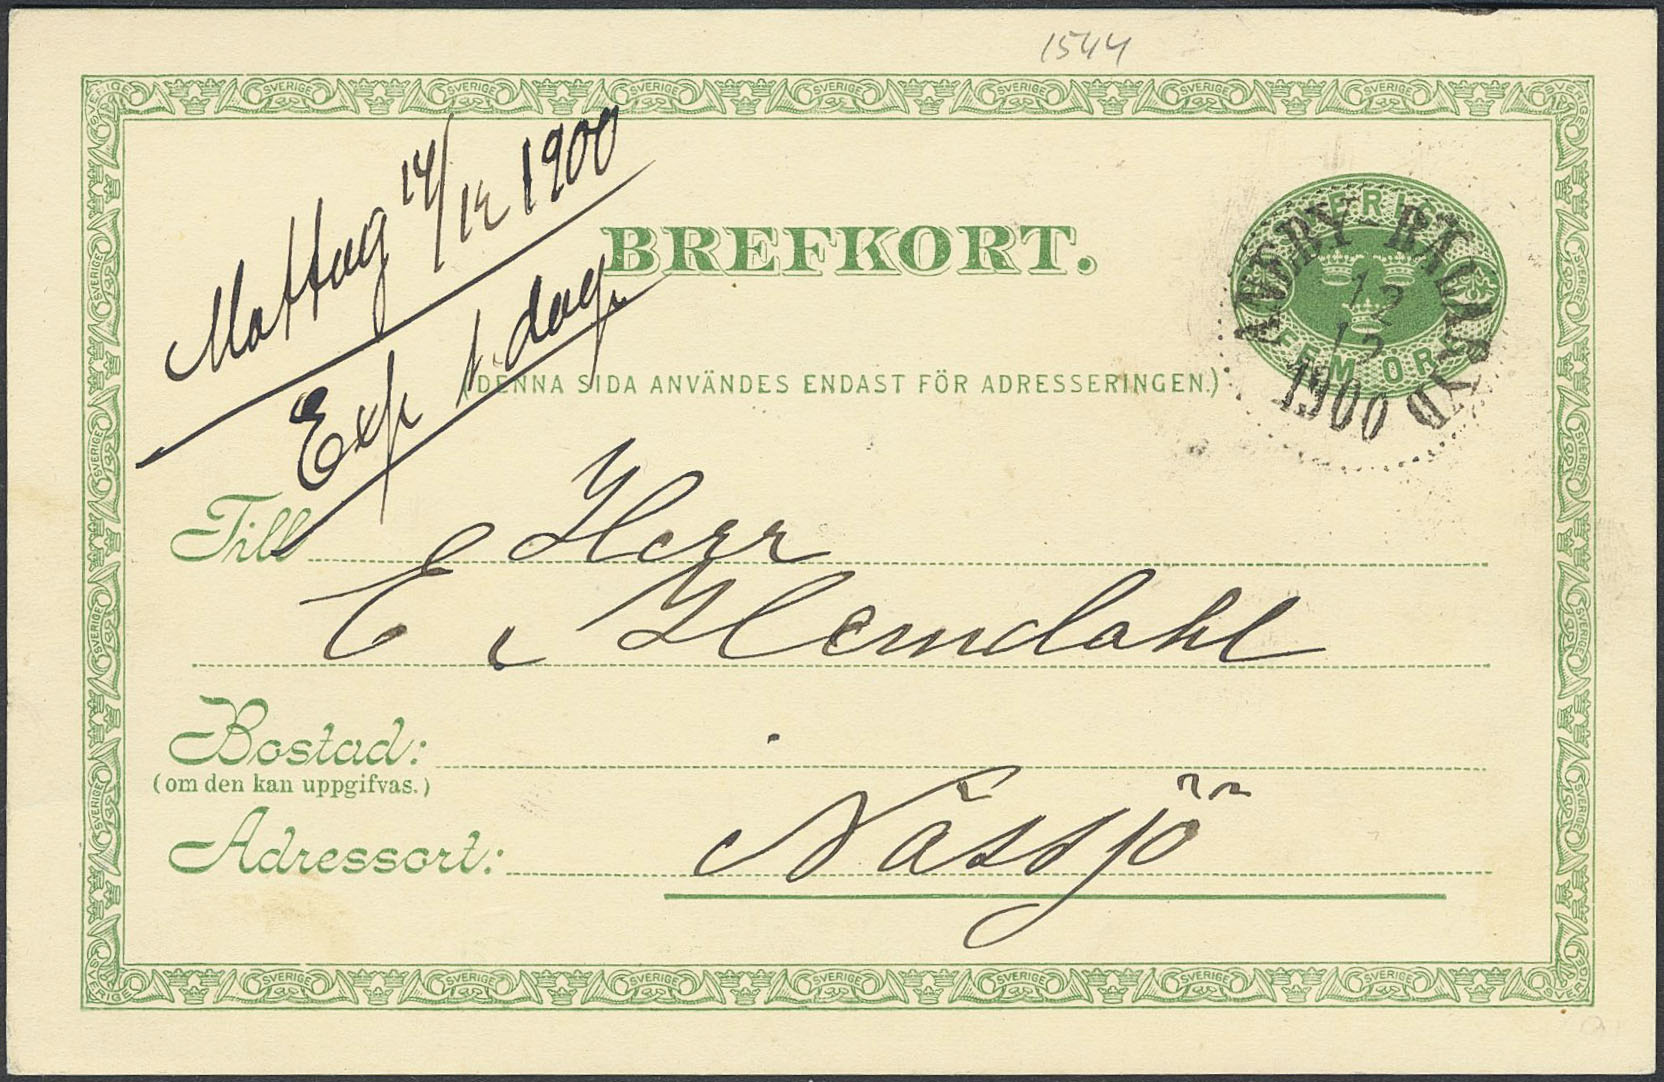 1544
Mottag 14/12 1900
Exp s. dag.
BREFKORT.
SVERIGE
FEM ÖRE
ANEBY-BÄLARYD
12
12
1900
(DENNA SIDA ANVÄNDES ENDAST FÖR ADRESSERINGEN.)
Till Herr
E. Hemdahl
Bostad:
(om den kan uppgifvas.)
Adressort: Nässjö